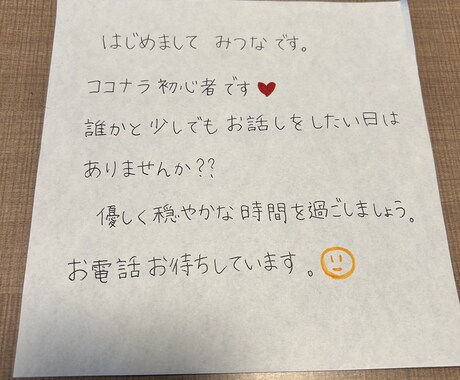 はじめまして みつなです。
ココナラ初心者です♥
誰かと少しでもお話しをしたい日は
ありませんか??
優しく穏やかな時間を過ごしましょう。
お電話お待ちしています。